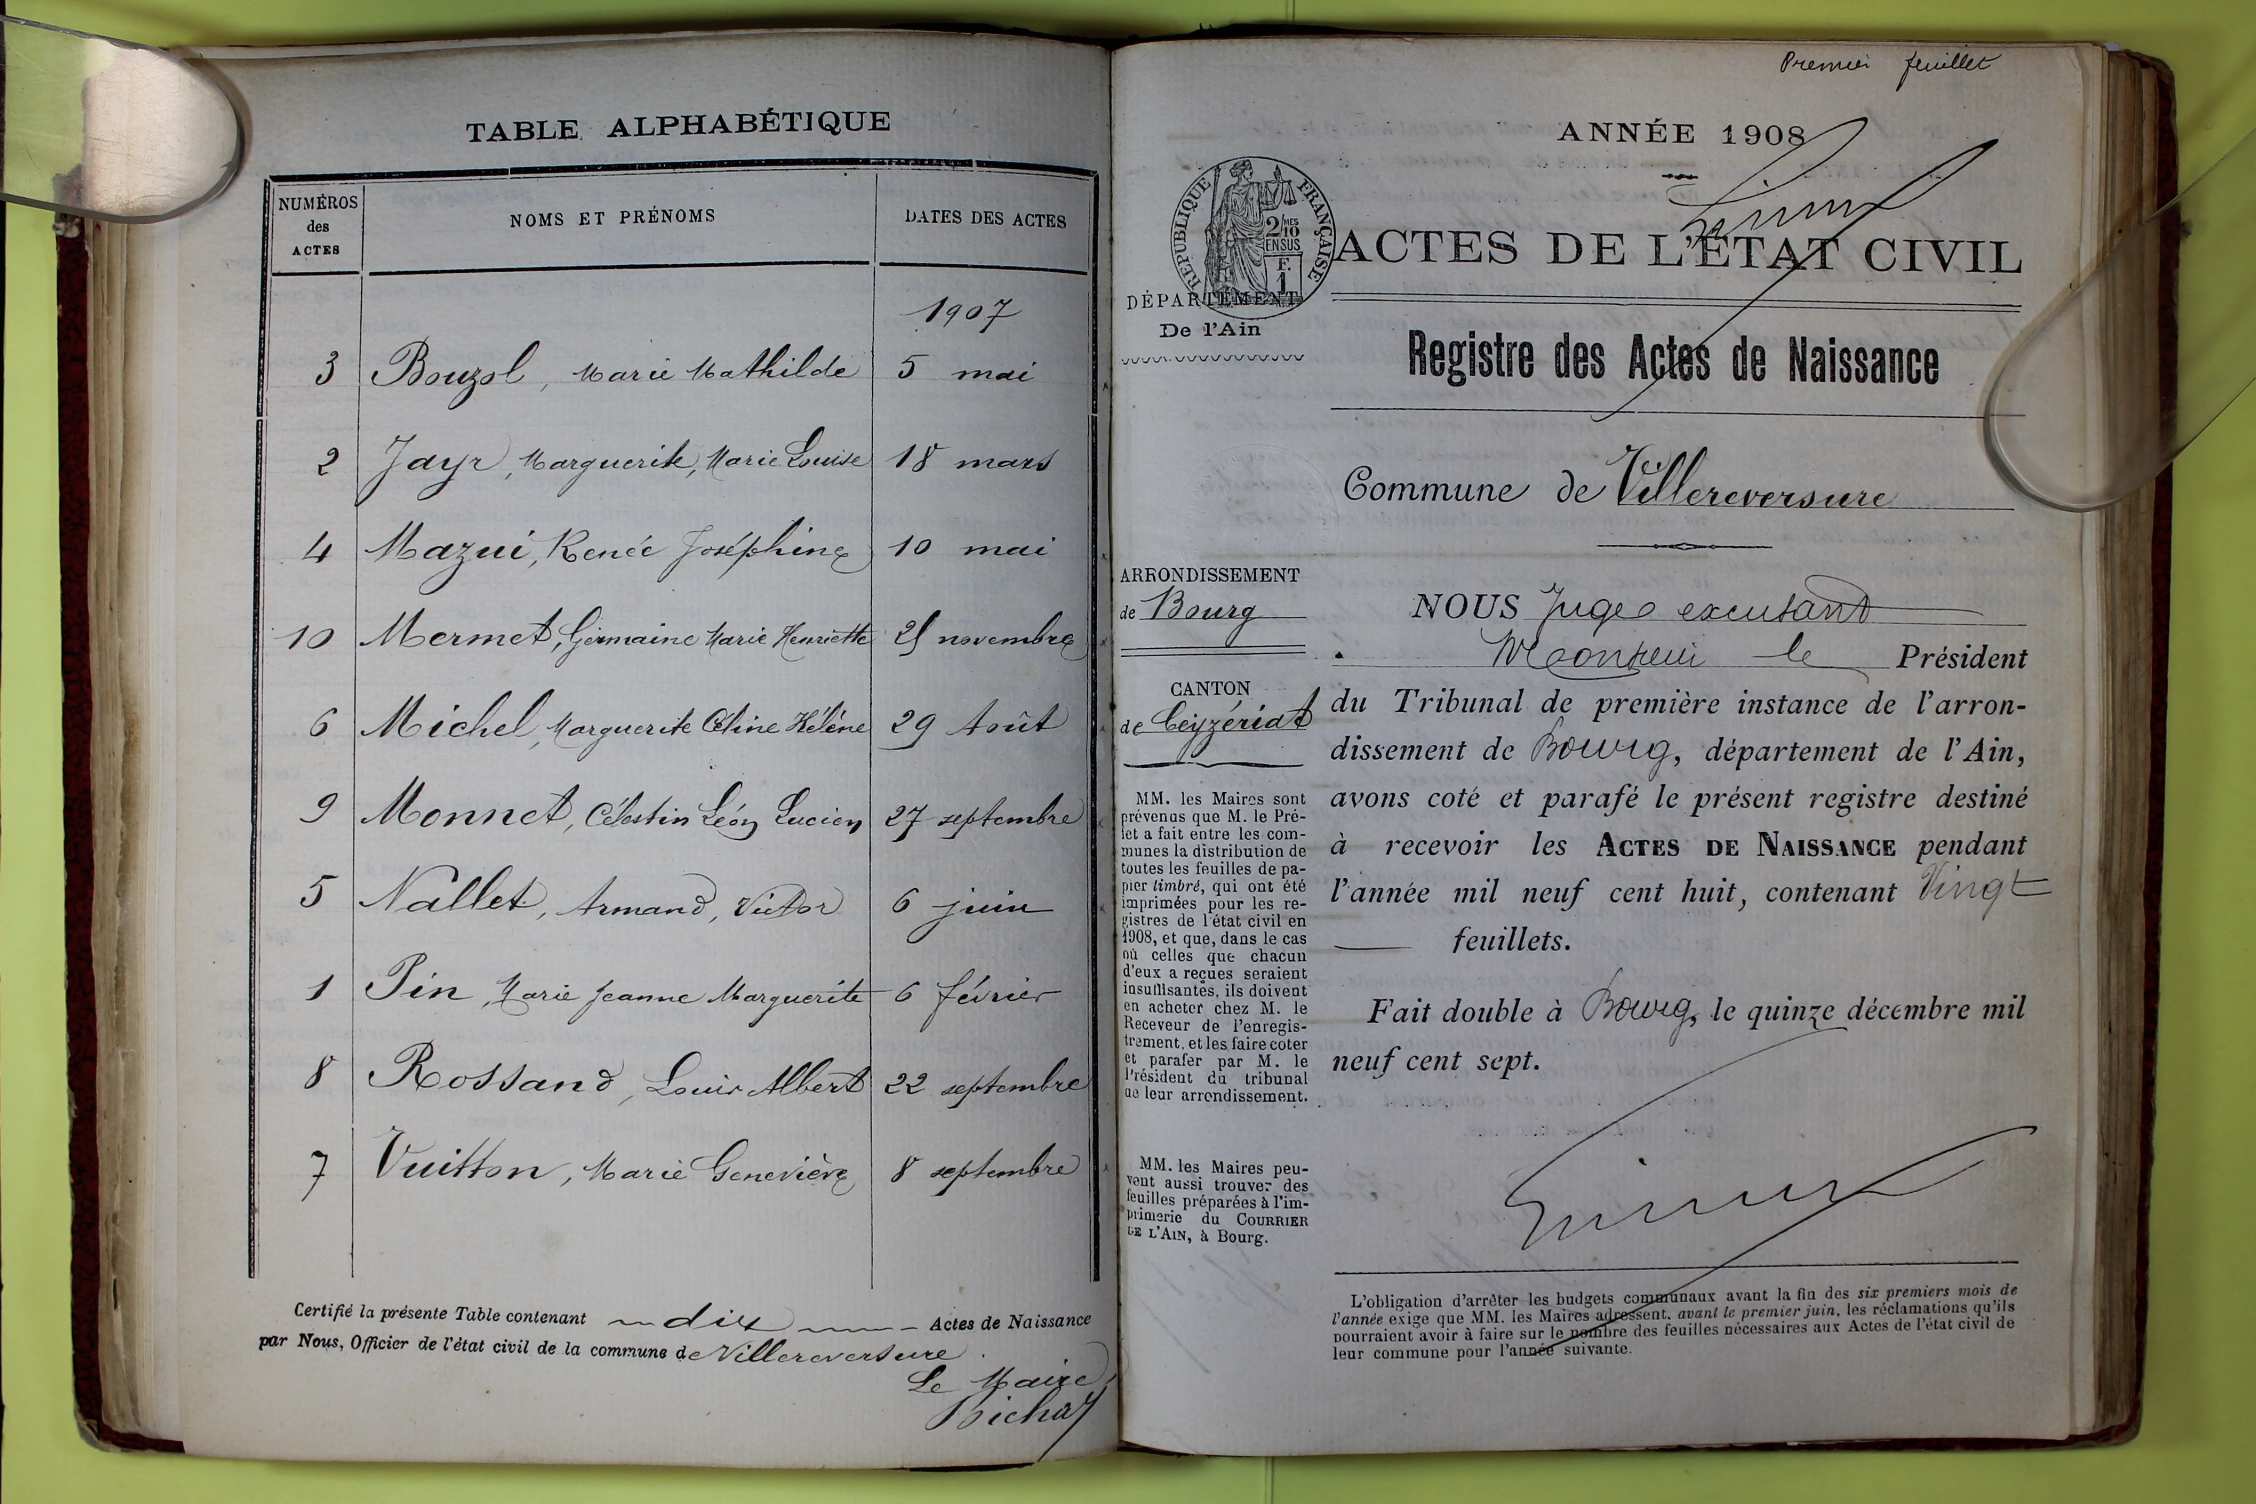 TABLE ALPHABÉTIQUE
NUMÉROS
des
ACTES
NOMS ET PRÉNOMS
DATES DES ACTES
1907
3 Bouzol, Marie Mathilde 5 mai
2 Jayr, Marguerite, Marie Louise 18 mars
4 Mazui, Renée Joséphine 10 mai
10 Mermet, Germaine Marie Henriette novembre
6 Michel, Marguerite Céline Hélène 29 Août
9 Monnet, Célestin Léon Lucien 27 septembre
5 Nallet, Armand, Victor 6 juin
1 Pin, Marie Jeanne Marguerite 6 février
8 Rossand, Louis Albert 22 septembre
7 Vuitton, Marie Geneviève 8 septembre
Certifié la présente Table contenant dix Actes de Naissance
par Nous, Officier de l'état civil de la commune de Villereversure.
Le Maire,
Premier feuillet
ANNÉE 1908
RÉPUBLIQUE FRANÇAISE
2/10MES
EN SUS
F.
1
ACTES DE L'ÉTAT CIVIL
DÉPARTEMENT
De l'Ain
Registre des Actes de Naissance
Commune de Villereversure
ARRONDISSEMENT
de Bourg
CANTON
de Ceyzériat
MM. les Maires sont
prévenus que M. le Pré-
fet a fait entre les com-
munes la distribution de
toutes les feuilles de pa-
pier timbré, qui ont été
imprimées pour les re-
gistres de l'état civil en
1908, et que, dans le cas
où celles que chacun
d'eux a reçues seraient
insuffisantes, ils doivent
en acheter chez M. le
Receveur de l'enregis-
trement, et les faire coter
et parafer par M. le
Président du tribunal
de leur arrondissement.
MM. les Maires peu-
vent aussi trouver des
feuilles préparées à l'im-
primerie du COURRIER
DE L'AIN, à Bourg.
NOUS Juge excusant
Monsieur le Président
du Tribunal de première instance de l'arron-
dissement de Bourg, département de l'Ain,
avons coté et parafé le présent registre destiné
à recevoir les ACTES DE NAISSANCE pendant
l'année mil neuf cent huit, contenant Vingt
feuillets.
Fait double à Bourg, le quinze décembre mil
neuf cent sept.
L'obligation d'arrêter les budgets communaux avant la fin des six premiers mois de
l'année exige que MM. les Maires adressent, avant le premier juin, les réclamations qu'ils
pourraient avoir à faire sur le nombre des feuilles nécessaires aux Actes de l'état civil de
leur commune pour l'année suivante.